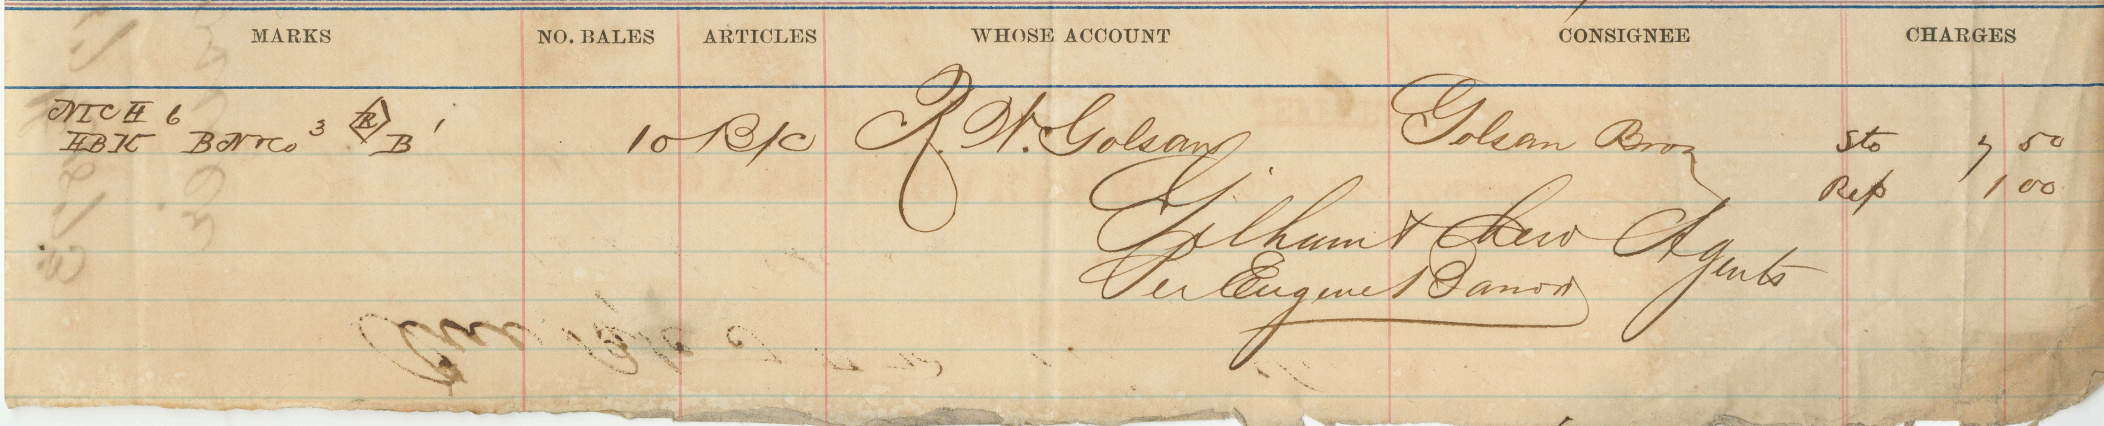 MARKS NO. BALES ARTICLES WHOSE ACCOUNT CONSIGNEE CHARGES
NTCH 6
HBK BN&Co 3 R B 1 10 B/C R. W. Golsan Golsan Bros Sto 7 50
Rep 1 00
Gilham & Chew Agents
Per Eugene